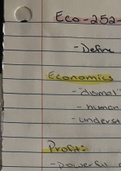 Eco-252-
- Define
Economics
- human
- underst
Profit:
- powerful